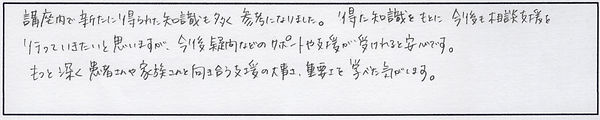 講座内で新たに得られた知識も多く参考になりました。得た知識をもとに今後も相談支援を
行っていきたいと思いますが、今後疑問などのサポートや支援が受けれると安心です。
もっと深く患者さんや家族さんと向き合う支援の大事さ、重要さを学べた気がします。